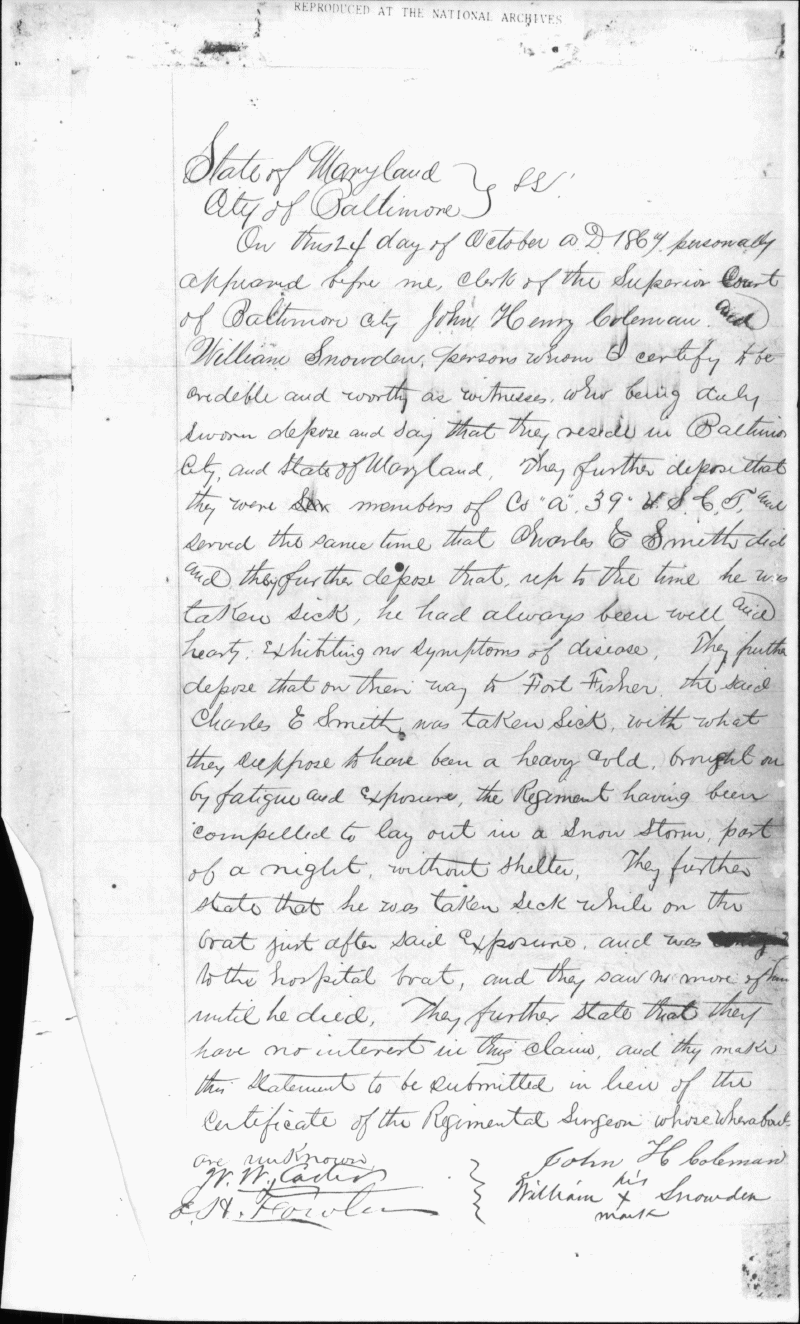 REPRODUCED AT THE NATIONAL ARCHIVES
State of Maryland } SS.
City of Baltimore
On this 24 day of October A.D. 1867 personally
appeared before me, clerk of the Superior Court
of Baltimore City John Henry Coleman and
William Snowden, persons whom I certify to be
credible and worthy as witnesses, who being duly
sworn depose and say that they reside in Baltimore
City, and State of Maryland. They further depose that
they were members of Co "A". 39" U.S.C.T. and
served the same time that Charles E Smith did
and they further depose that, up to the time he was
taken sick, he had always been well and
hearty. Exhibiting no symptoms of disease. They further
depose that on their way to Fort Fisher, the said
Charles E Smith was taken sick, with what
they suppose to have been a heavy cold, brought on
by fatigue and exposure, the Regiment having been
compelled to lay out in a Snow Storm, part
of a night, without shelter. They further
state that he was taken sick while on the
boat just after said Exposure, and was
to the hospital boat, and they saw no more of him
until he died. They further state that they
have no interest in this claim, and thy make
this statement to be submitted in lieu of the
certificate of the Regimental Surgeon whose whereabouts
are unknown
W. W. Carter } John H Coleman
H. Fowler William his x mark Snowden